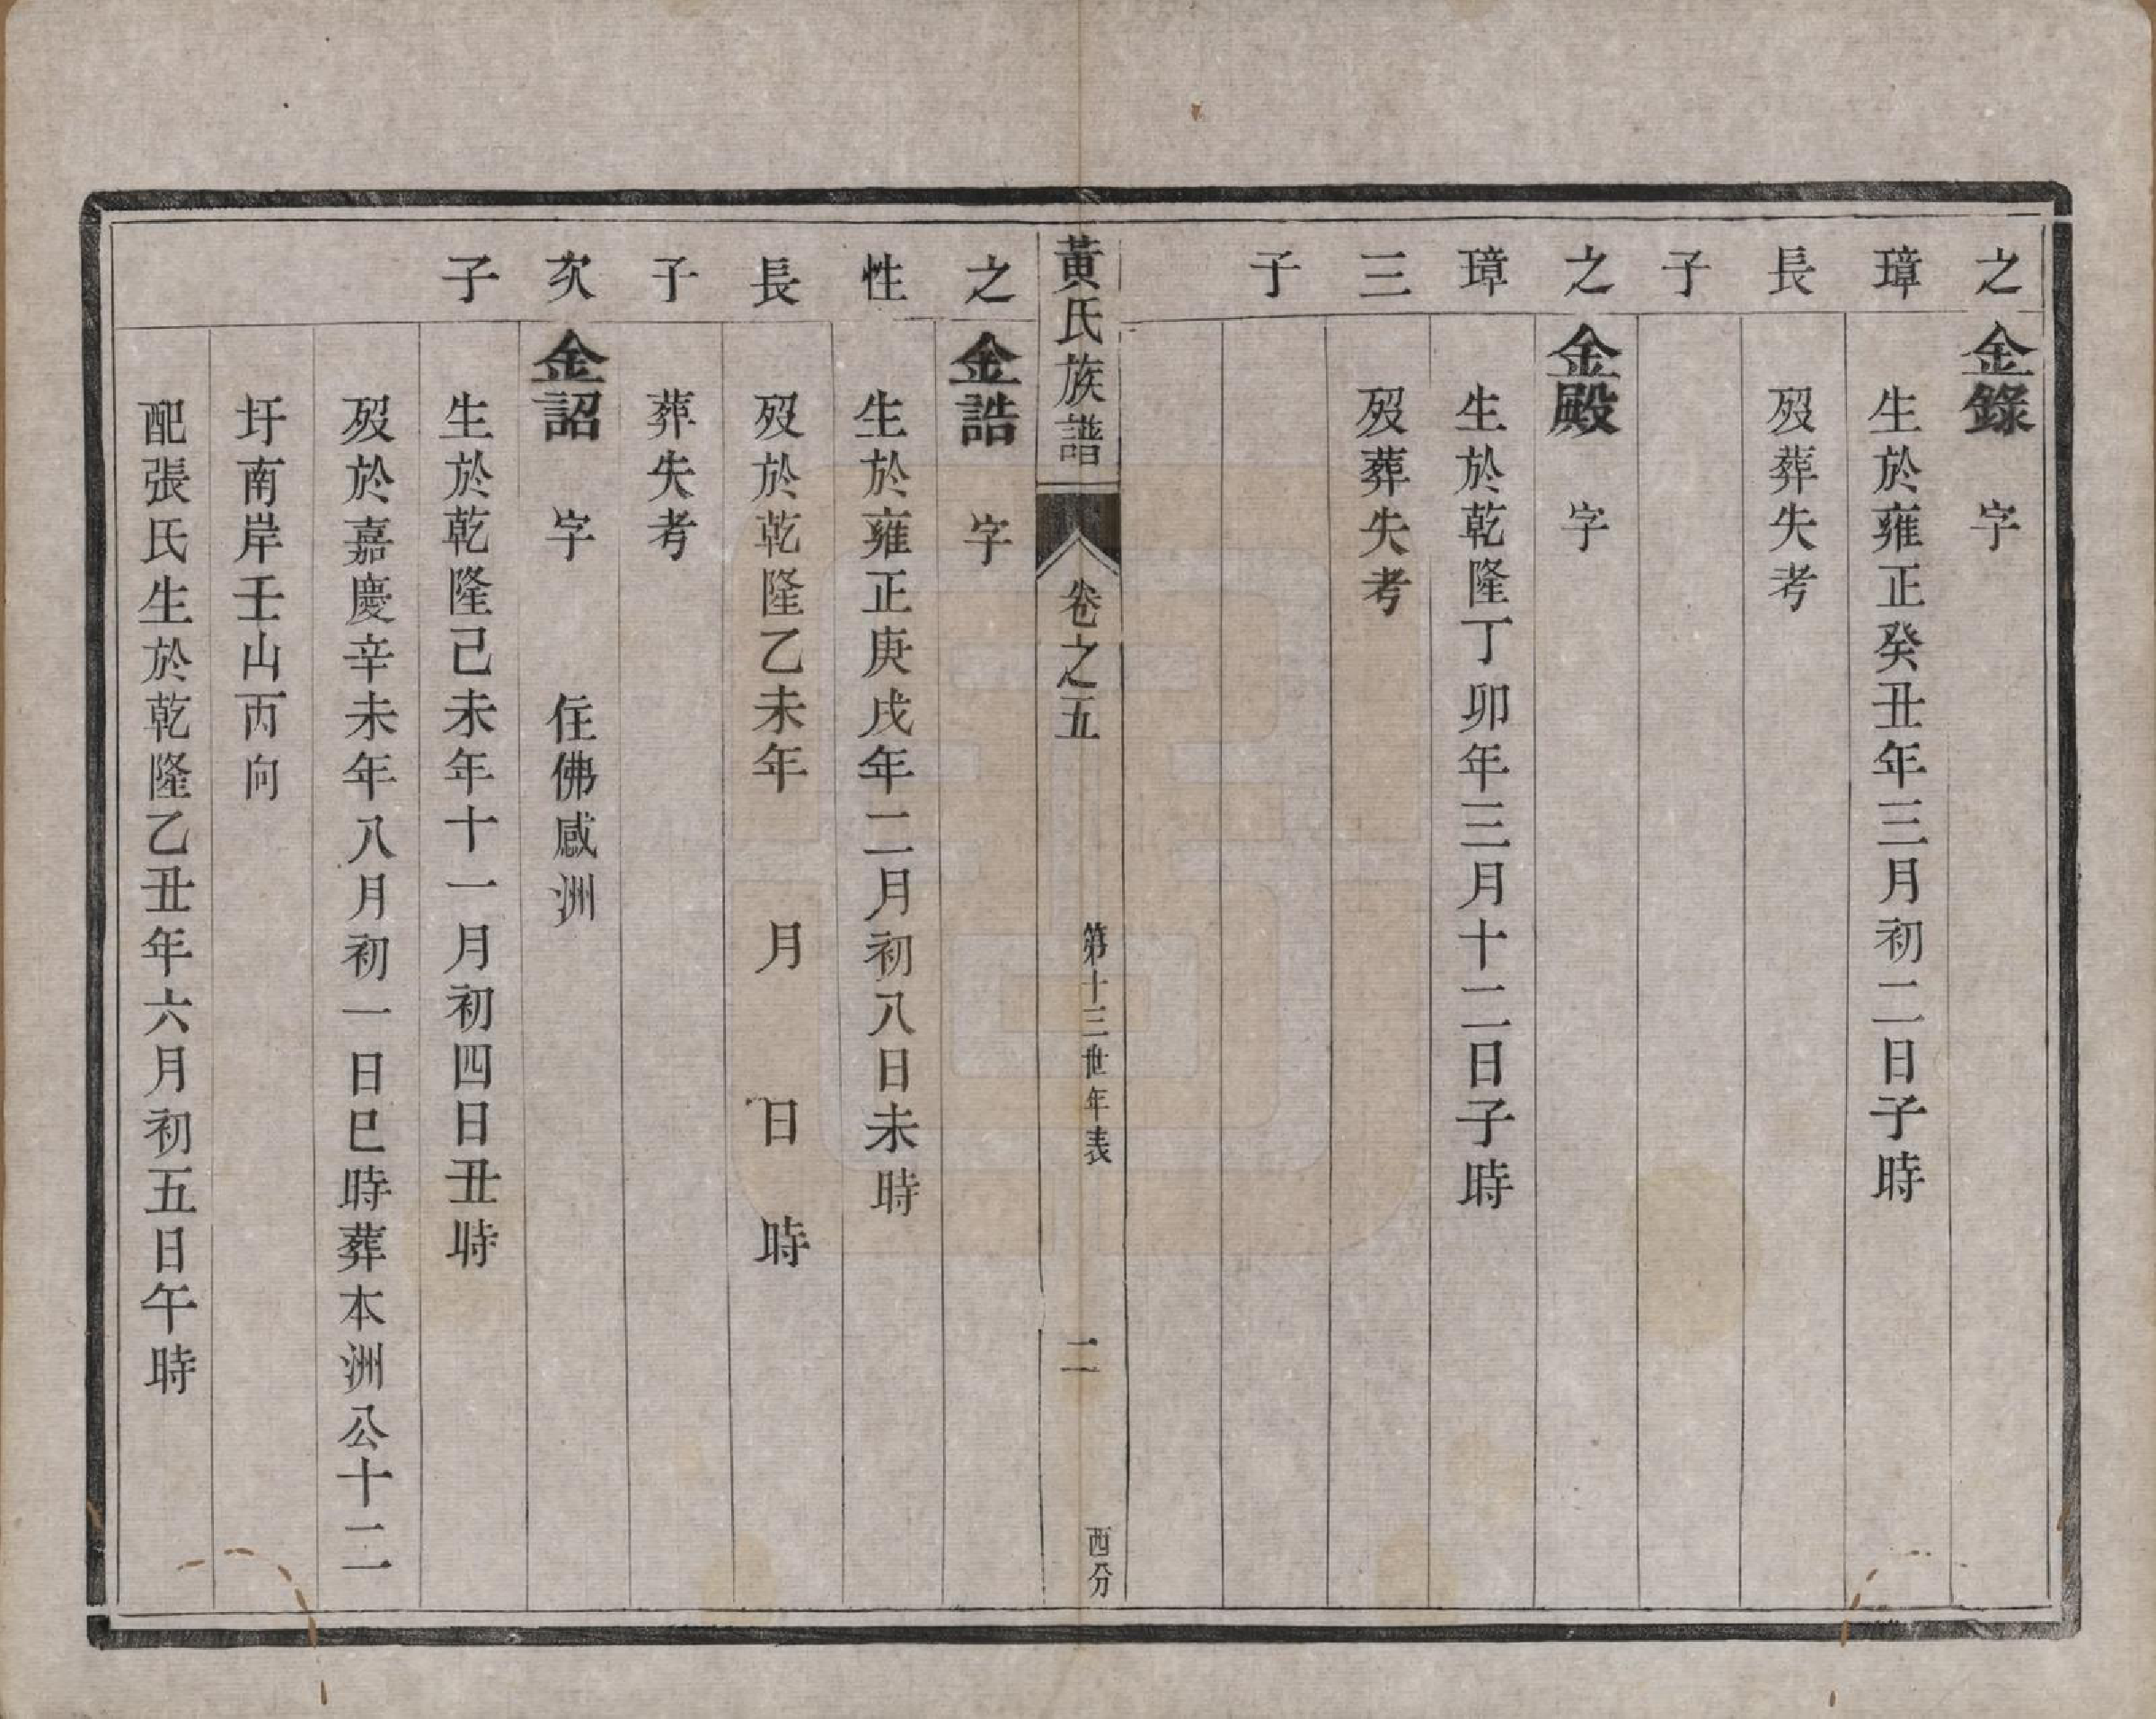 之璋長子
金錄　字
生於雍正癸丑年三月初二日子時
歿葬失考
之璋三子
金殿　字
生於乾隆丁卯年三月十二日子時
歿葬失考
黃氏族譜　卷之五　第十三世年表　二　西分
之性長子
金誥　字
生於雍正庚戌年二月初八日未時
歿於乾隆乙未年　月　日　時
葬失考
次子
金詔　字　住佛感洲
生於乾隆己未年十一月初四日丑時
歿於嘉慶辛未年八月初一日巳時葬本洲公十二
圩南岸壬山丙向
配張氏生於乾隆乙丑年六月初五日午時